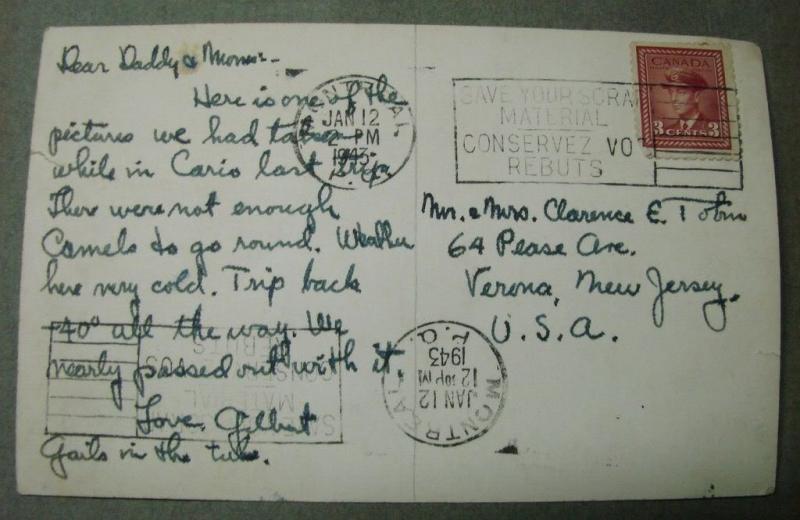 Dear Daddy & Mom:-
Here is one of the
pictures we had taken
while in Cario last trip.
There were not enough
Camels to go round. Weather
here very cold. Trip back
-40° all the way. We
nearly passed out with it.
Love, Gilbert
Gails in the tub.
MONTREAL
JAN 12
2 PM
1943
P.Q.
SAVE YOUR SCRAP
MATERIAL
CONSERVEZ VOS
REBUTS
CANADA
3 CENTS 3
Mr. & Mrs. Clarence E. Tobin
64 Pease Ave.
Verona, New Jersey.
U.S.A.
MONTREAL
JAN 12
1943
P.Q.
SAVE
MATERIAL
CONSER OS
REBUTS